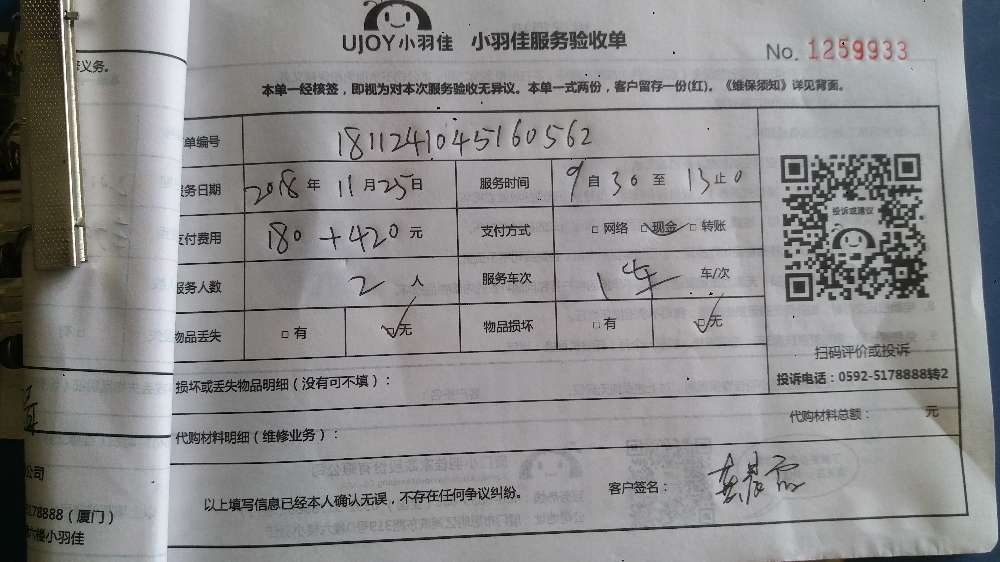 UJOY小羽佳 小羽佳服务验收单
No. 1259933
本单一经核签，即视为对本次服务验收无异议。本单一式两份，客户留存一份(红)。《维保须知》详见背面。
义务。
单编号 1811241045160562
服务日期 2018年11月25日 服务时间 9自30至13止0
支付费用 180+420元 支付方式 □网络 □现金 □转账
服务人数 2人 服务车次 1车 车/次
物品丢失 □有 □无 物品损坏 □有 □无
投诉或建议
扫码评价或投诉
投诉电话：0592-5178888转2
损坏或丢失物品明细（没有可不填）：
代购材料明细（维修业务）： 代购材料总额： 元
以上填写信息已经本人确认无误，不存在任何争议纠纷。 客户签名：
公司
5178888（厦门）
六楼小羽佳